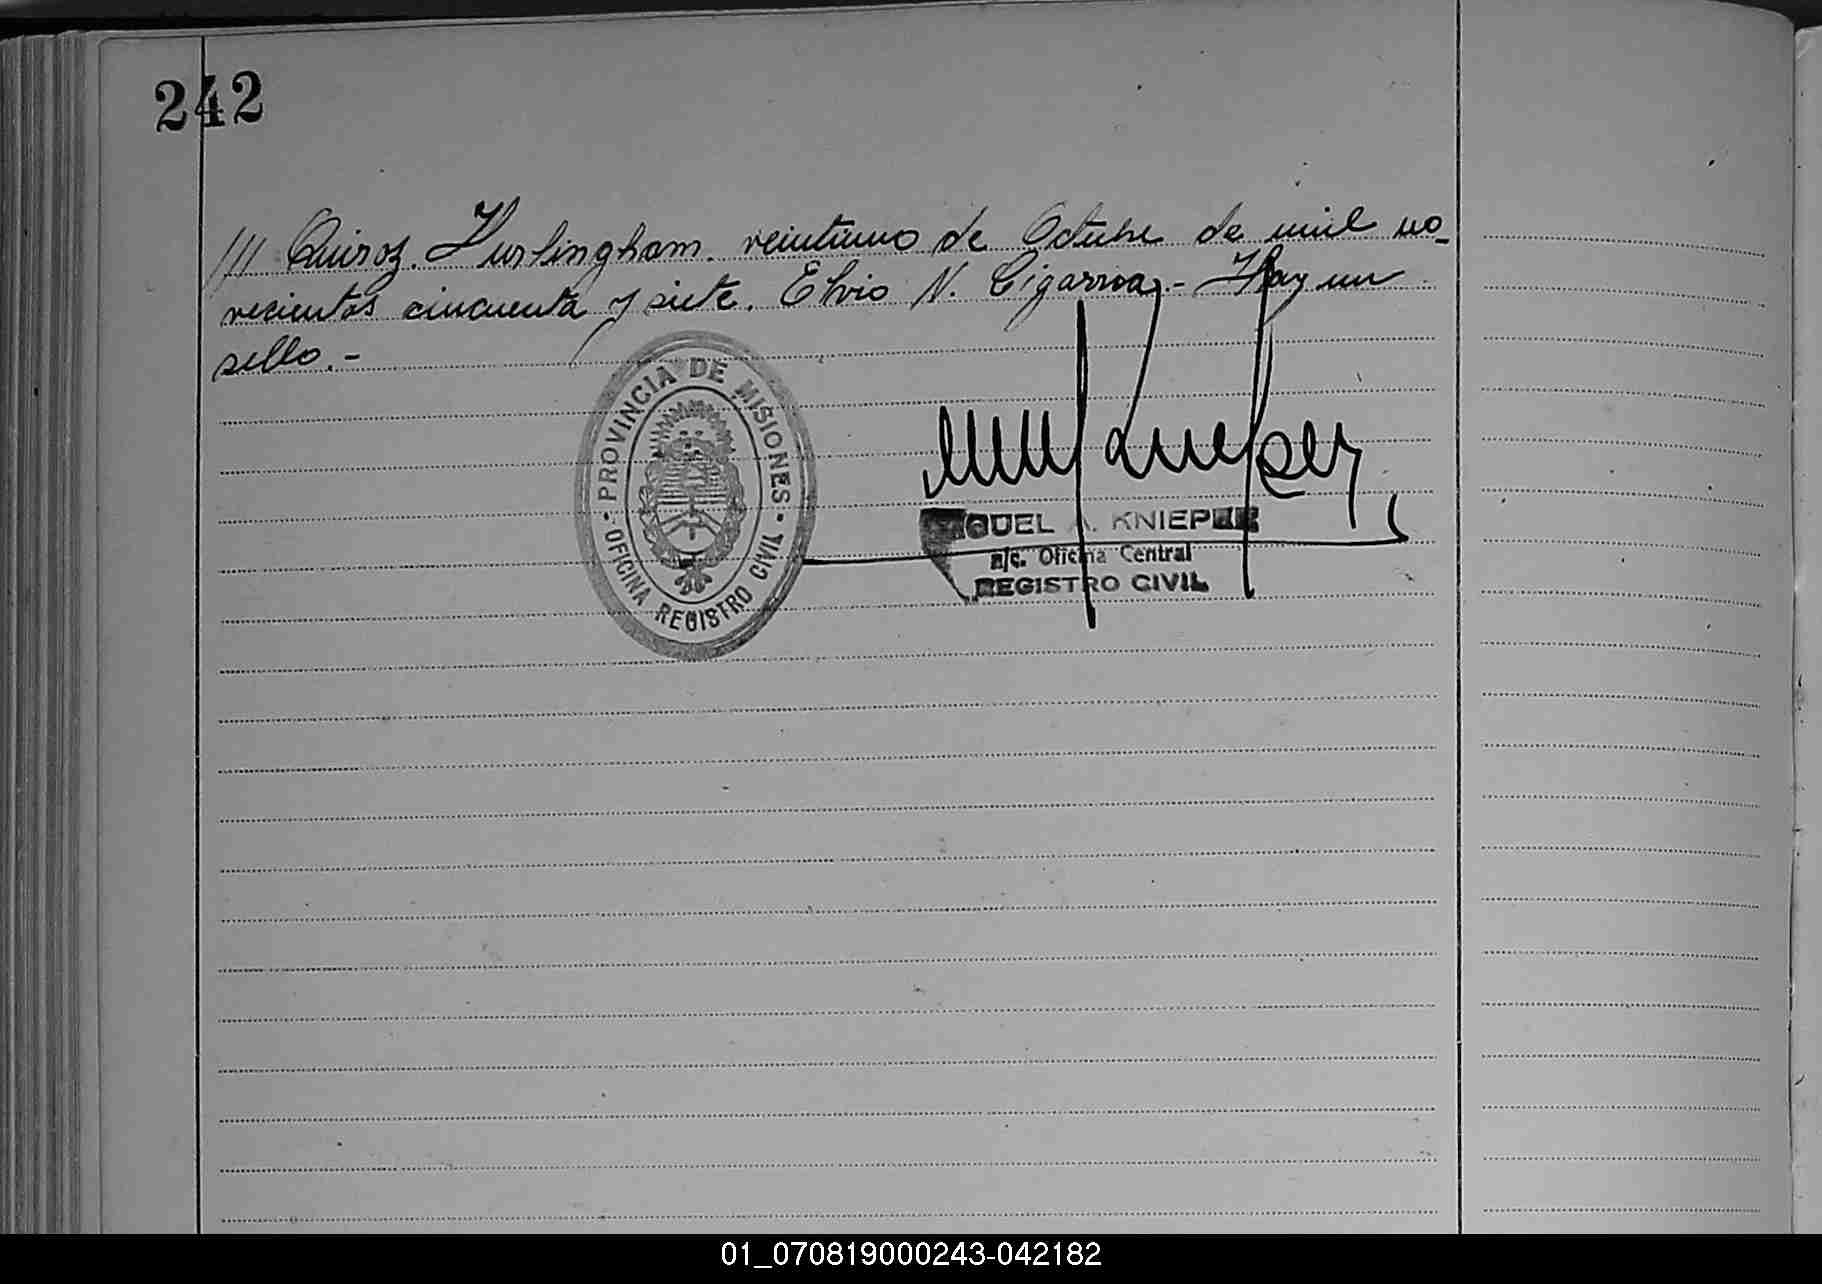 242
/// Quiroz. Hurlingham. veintiuno de Octubre de mil no-
vecientos cincuenta y siete. Elvio N. Cigarroa.- Hay un
sello.-
PROVINCIA DE MISIONES
OFICINA REGISTRO CIVIL
MIGUEL A. KNIEPER
a/c. Oficina Central
REGISTRO CIVIL
01_070819000243-042182